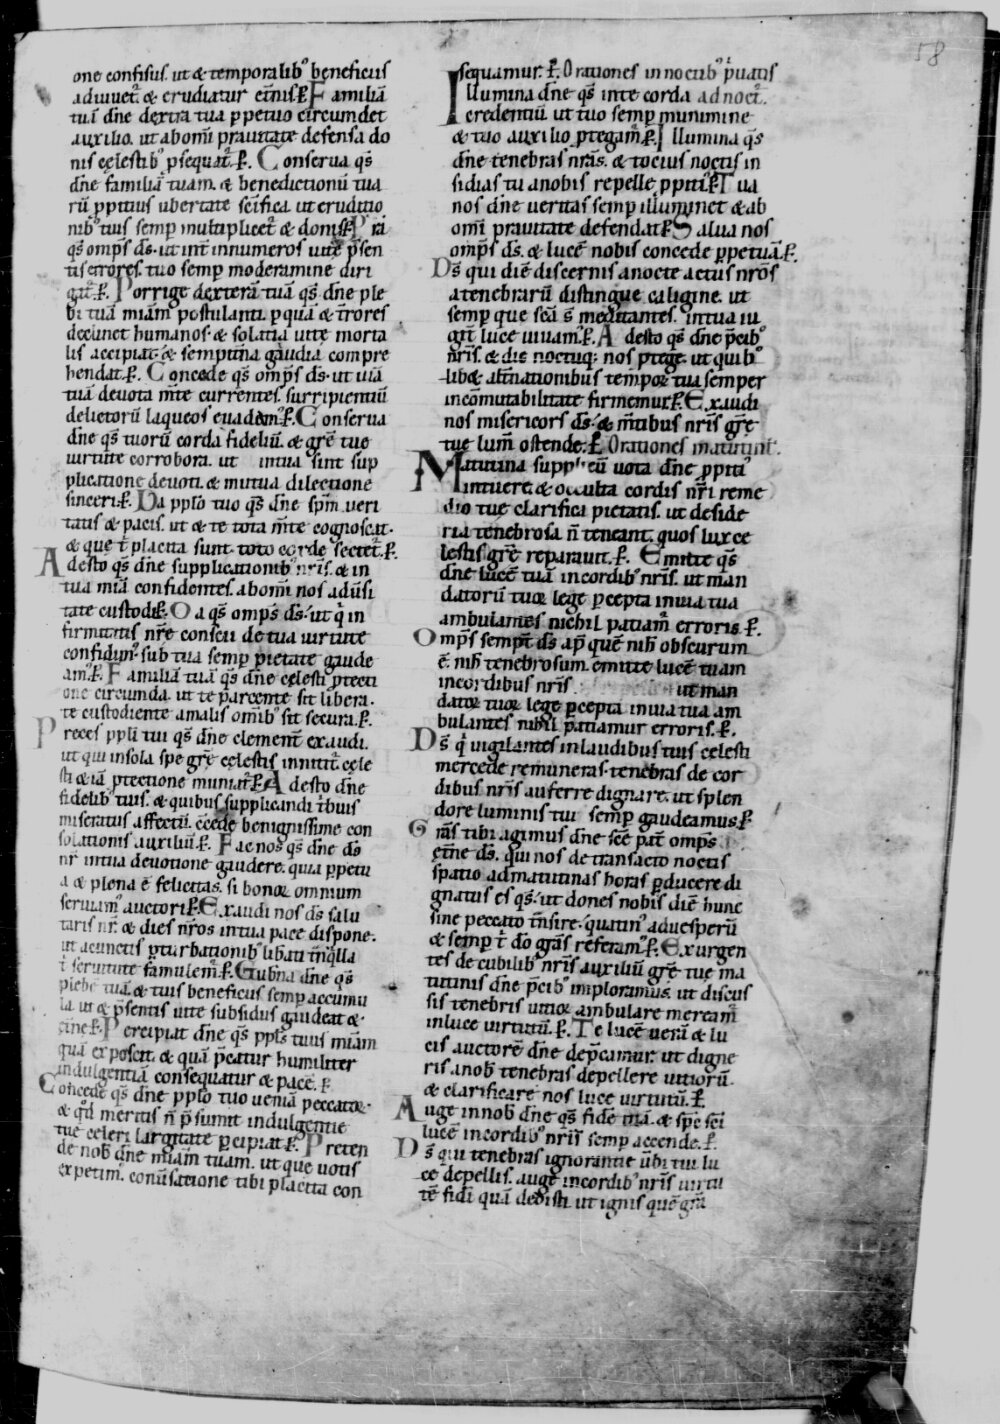 58
one confisus. ut & temporalib᾽ beneficiis
adiuuet᷑. & erudiatur et̄nis. P̄. Familiā
tuā dn̄e dextra tua p̱petuo circumdet
auxilio. ut abom̄i prauitate defensa do
nis cęlestib᾽ p̱sequat᷑. P̄. Conserua qs̄
dn̄e familiā tuam. & benedictionū tua
rū p̱pitius ubertate sc̄ifica. ut eruditio
nib᾽ tuis semp̱ multiplicet᷑ & donis. P̄. P̱ra
qs̄ omp̄s ds̄. ut int̄ innumeros uitę p̄sen
tis errores. tuo semp̱ moderamine diri
gat᷑. P̄. Porrige dexterā tuā qs̄ dn̄e ple
bi tuā mīam postulanti. p̱ quā & t̄rores
declinet humanos. & solatia uite morta
lis accipiat. & sempit̄na gaudia compre
hendat. P̄. Concede qs̄ omp̄s ds̄. ut uiā
tuā deuota m̄te currentes. surripientiū
delictorū laqueos euadam᾽. P̄. Conserua
dn̄e qs̄ tuorū corda fideliū. & grē tue
uirtute corrobora. ut intua sint sup
plicatione deuoti. & mutua dilectione
sinceri. P̄. Da pplo tuo qs̄ dn̄e sp̄m ueri
tatis & pacis. ut & te tota m̄te cognoscat.
& que t̄ placita sunt. toto corde sectet᷑. P̄.
Adesto qs̄ dn̄e supplicationib᾽ nr̄is. & in
tua mīa confidentes. abom̄i nos adūsi
tate custodi. P̄. Oa qs̄ omps̄ ds̄. ut q̇ in
firmitatis nr̄e conscii de tua uirtute
confidim᾽. sub tua semp̱ pietate gaude
am᾽. P̄. Familiā tuā qs̄ dn̄e cęlesti p̱tecti
one circumda. ut te parcente sit libera.
te custodiente amalis om̄ib᾽ sit secura. P̄.
Preces ppli tui qs̄ dn̄e clement᷑ exaudi.
ut qui insola spe grę̄ cęlestis innitit᷑. cęle
sti & iā p̱tectione muniat᷑. P̄. Adesto dn̄e
fidelib᾽ tuis. & quibus supplicandi t̄buis
miseratus affectū. c̄cede benignissime con
solationis auxiliū. P̄. Fac nos qs̄ dn̄e ds̄
nr̄ intua deuotione gaudere. quia p̱petu
a & plena ē felicitas. si bonoꝝ omnium
seruiam᾽ auctori. P̄. Exaudi nos ds̄ salu
taris nr̄. & dies nr̄os intua pace dispone.
ut acunctis p̱turbationib᾽ libati t̄nq̇lla
t̄ seruitute famulem᷑. P̄. Gubn̄a dn̄e qs̄
plebē tuā. & tuis beneficiis semp̱ accumu
la. ut & p̄sentis uite subsidiis gaudeat &
et̄ne. P̄. Percipiat dn̄e qs̄ ppls̄ tuus mīam
quā exposcit. & quā p̄catur humiliter
indulgentiā consequatur & pacē. P̄.
Concede qs̄ dn̄e pplo tuo ueniā peccatoꝝ.
& qd̄ meritis n̄ p̄sumit indulgentie
tue celeri largitate p̱cipiat. P̄. Preten
de nob̄ dn̄e mīam tuam. ut que uotis
expetim᾽. conūsatione tibi placita con
sequamur. P̄. Orationes innoctib᾽ p̱uatis
Illumina dn̄e qs̄ inte corda ad noct᷑.
credentiū ut tuo semp̱ munimine
& tuo auxilio p̱tegam᷑. P̄. Illumina qs̄
dn̄e tenebras nr̄as. & tocius noctis in
sidias tu anobis repelle p̱piti᾽. P̄. Tua
nos dn̄e ueritas semp̱ illuminet & ab
om̄i prauitate defendat. P̄. Salua nos
omp̄s ds̄. & lucē nobis concede p̱petuā. P̄.
Ds̄ qui diē discernis anocte actus nr̄os
atenebrarū distingue caligine. ut
semp̱ que sc̄a s̄ meditantes. intua iu
git̄ luce uiuam᾽. P̄. Adesto qs̄ dn̄e p̄cib᾽
nr̄is. & die noctuq; nos p̱tege. ut quib᾽
lib& alt̄nationibus tempoꝝ tua semper
incōmutabilitate firmemur. P̄. Exaudi
nos misericors ds̄. & m̄tibus nr̄is grę̄
tue lum̄ ostende. P̄. Orationes matutinł.
Matutina suppl̄icū uota dn̄e p̱piti᾽
intuere. & occulta cordis nr̄i reme
dio tue clarifica pietatis. ut deside
ria tenebrosa n̄ teneant. quos lux ce
lestis grē̄ reparauit. P̄. Emitte qs̄
dn̄e lucē tuā incordib᾽ nr̄is. ut man
datorū tuoꝝ lege p̱cepta inuia tua
ambulantes nichil patiam᷑ erroris. P̄.
Omp̄s sempt̄ ds̄ ap̄ quē nih̄ obscurum
ē. nih̄ tenebrosum. emitte lucē tuam
incordibus nr̄is ut man
datoꝝ tuoꝝ lege p̱cepta inuia tua am
bulantes nihil patiamur erroris. P̄.
Ds̄ q̇ uigilantes inlaudibus tuis cęlesti
mercede remuneras. tenebras de cor
dibus nr̄is auferre dignare. ut splen
dore luminis tui semp̱ gaudeamus. P̄.
Grās tibi agimus dn̄e sc̄e pat̄ omps̄
et̄ne ds̄. qui nos de transacto noctis
spatio admatutinas horas p̱ducere di
gnatus es qs̄. ut dones nobis diē hunc
sine peccato t̄nsire. quatin᾽ aduesperū
& semp̱ t̄ dō grās referam᾽. P̄. Exurgen
tes de cubilib᾽ nr̄is auxiliū grē̄ tue ma
tutinis dn̄e p̄cib᾽ imploramus. ut discus
sis tenebris uitioꝝ ambulare meream᷑
inluce uirtutū. P̄. Te lucē uerā & lu
cis auctorē dn̄e dep̄camur. ut digne
ris anob̄ tenebras depellere uitiorū.
& clarificare nos luce uirtutū. P̄.
Auge innob̄ dn̄e qs̄ fidē tuā. & sp̄c sc̄i
lucē incordib᾽ nr̄is semp̱ accende. P̄.
Ds̄ qui tenebras ignorantie ūbi tui lu
ce depellis. auge incordib᾽ nr̄is uirtu
tē fidi quā dedisti. ut ignis quē grā